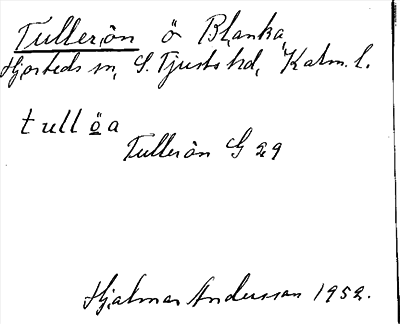 Tullerön ö Blanka
Hjorteds sn, S. Tjusts hd, Kalm. l.
tullöa
Tullerön G 29
Hjalmar Andersson 1952.